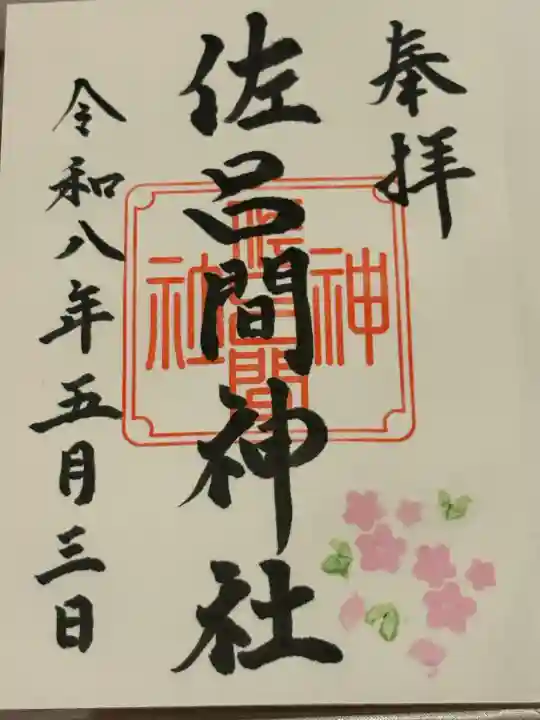 奉拝
佐呂間神社
令和八年五月三日
神
社